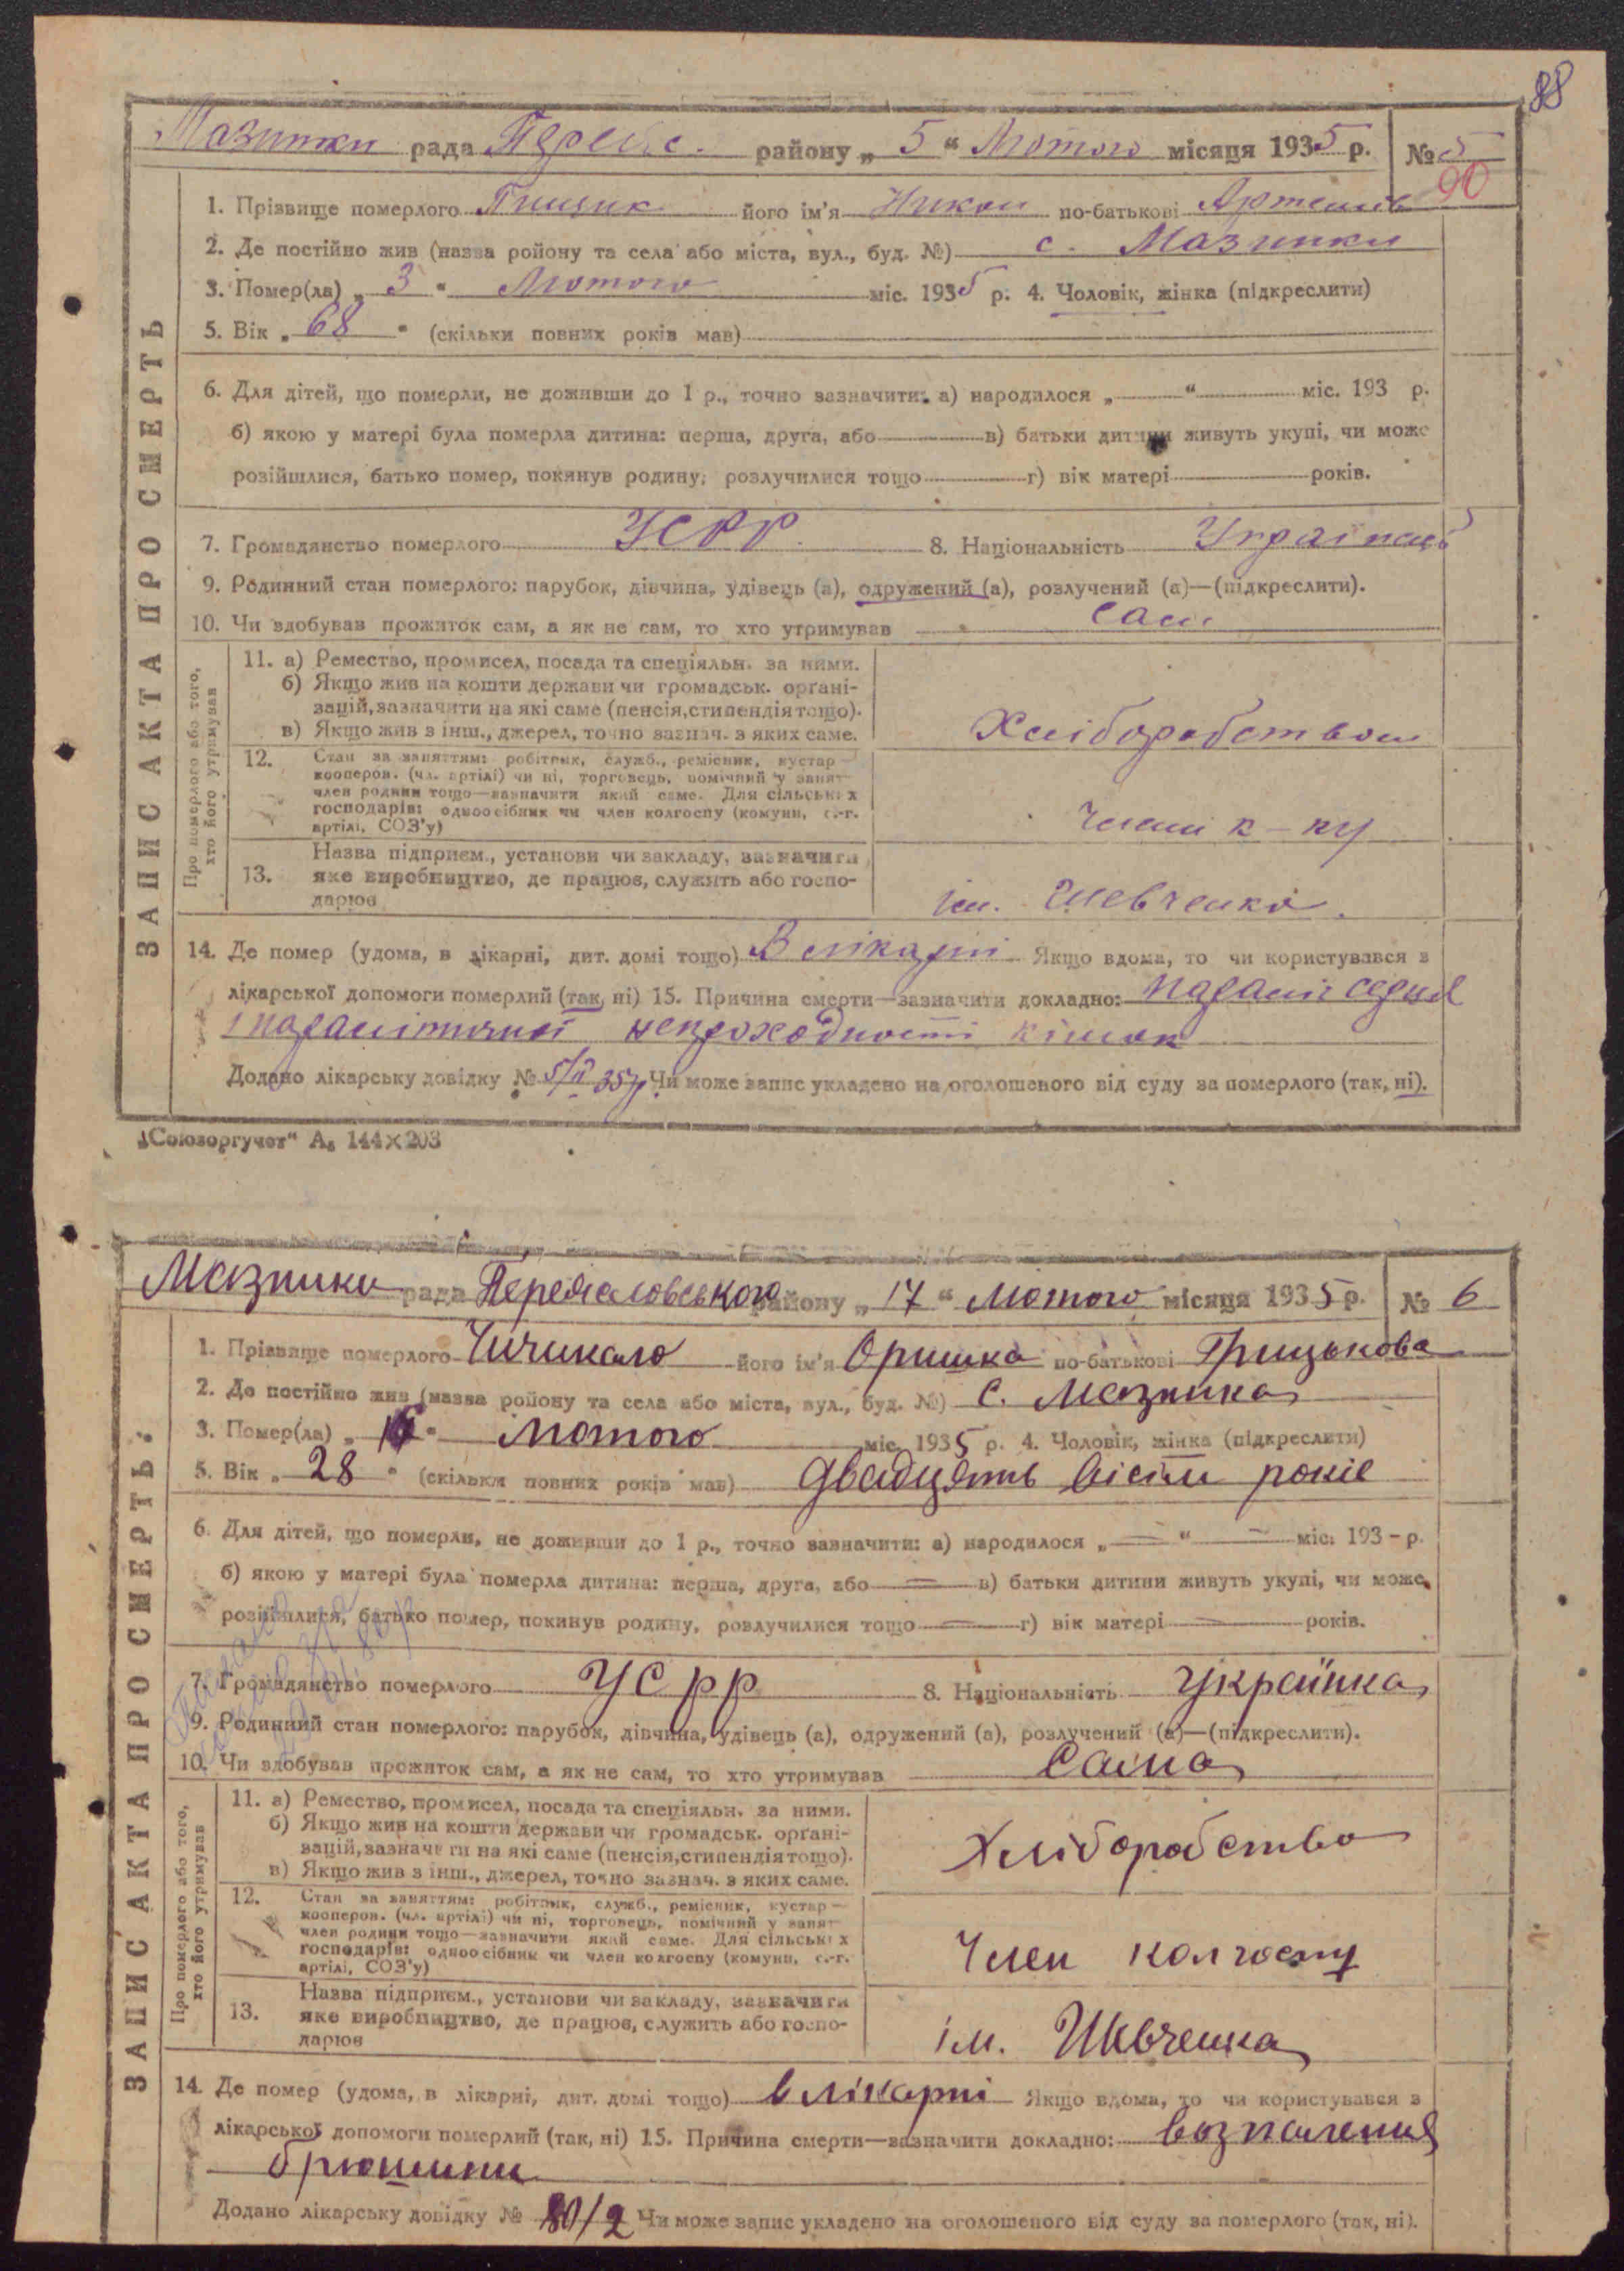 88
Мазинки рада Переяс. району „ 5 “ Лютого місяця 1935 р. № 5
90
1. Прізвище померлого Гнищик його ім'я Никон по-батькові Артемів
2. Де постійно жив (назва ройону та села або міста, вул., буд. №) с. Мазинки
3. Помер(ла) „ 3 “ Лютого міс. 1935 р. 4. Чоловік, жінка (підкреслити)
5. Вік „ 68 “ (скільки повних років мав)
6. Для дітей, що померли, не доживши до 1 р., точно зазначити: а) народилося „ “ міс. 193 р.
б) якою у матері була померла дитина: перша, друга, або в) батьки дитини живуть укупі, чи може
розійшлися, батько помер, покинув родину, розлучилися тощо г) вік матері років.
7. Громадянство померлого УСРР 8. Національність Українець
9. Родинний стан померлого: парубок, дівчина, удівець (а), одружений (а), розлучений (а)—(підкреслити).
10. Чи здобував прожиток сам, а як не сам, то хто утримував сам
ЗАПИС АКТА ПРО СМЕРТЬ
Про померлого або того,
хто його утримував
11. а) Ремество, промисел, посада та спеціяльн. за ними.
б) Якщо жив на кошти держави чи громадськ. орґані-
зацій, зазначити на які саме (пенсія, стипендія тощо).
в) Якщо жив з інш., джерел, точно зазнач. з яких саме.
Хліборобством
12. Стан за заняттям: робітник, служб., ремісник, кустар —
кооперов. (чл. артілі) чи ні, торговець, помічний у занят—
член родини тощо—зазначити який саме. Для сільських
господарів: одноосібник чи член колгоспу (комуни, с.-г.
артілі, СОЗ'у)
Член к-пу
13. Назва підприєм., установи чи закладу, зазначити
яке виробництво, де працює, служить або госпо-
дарює
ім. Шевченка.
14. Де помер (удома, в лікарні, дит. домі тощо) В лікарні Якщо вдома, то чи користувався з
лікарської допомоги померлий (так, ні) 15. Причина смерти—зазначити докладно: параліч серця
і паралітичної непроходності кішок
Додано лікарську довідку № 5/II 35р. Чи може запис укладено на оголошеного від суду за померлого (так, ні).
„Союзоргучет“ А₆ 144×203
Мазинки рада Переяславського району „ 17 “ Лютого місяця 1935 р. № 6
1. Прізвище померлого Чичикало його ім'я Оришка по-батькові Грицькова
2. Де постійно жив (назва ройону та села або міста, вул., буд. №) с. Мазинка
3. Помер(ла) „ “ Лютого міс. 1935 р. 4. Чоловік, жінка (підкреслити)
5. Вік „ 28 “ (скільки повних років мав) двадцять вісім років
6. Для дітей, що померли, не доживши до 1 р., точно зазначити: а) народилося „ — “ — міс. 193 - р.
б) якою у матері була померла дитина: перша, друга, або — в) батьки дитини живуть укупі, чи може,
розійшлися, батько помер, покинув родину, розлучилися тощо — г) вік матері — років.
7. Громадянство померлого УСРР 8. Національність Українка
9. Родинний стан померлого: парубок, дівчина, удівець (а), одружений (а), розлучений (а)—(підкреслити).
10. Чи здобував прожиток сам, а як не сам, то хто утримував Сама
ЗАПИС АКТА ПРО СМЕРТЬ
Про померлого або того,
хто його утримував
11. а) Ремество, промисел, посада та спеціяльн. за ними.
б) Якщо жив на кошти держави чи громадськ. орґані-
зацій, зазначити на які саме (пенсія, стипендія тощо).
в) Якщо жив з інш., джерел, точно зазнач. з яких саме.
Хліборобство
12. Стан за заняттям: робітник, служб., ремісник, кустар —
кооперов. (чл. артілі) чи ні, торговець, помічний у занят—
член родини тощо—зазначити який саме. Для сільських
господарів: одноосібник чи член колгоспу (комуни, с.-г.
артілі, СОЗ'у)
Член колгоспу
13. Назва підприєм., установи чи закладу, зазначити
яке виробництво, де працює, служить або госпо-
дарює
ім. Шевченка
14. Де помер (удома, в лікарні, дит. домі тощо) в лікарні Якщо вдома, то чи користувався з
лікарської допомоги померлий (так, ні) 15. Причина смерти—зазначити докладно: возпаления
брюшини
Додано лікарську довідку № 80/2 Чи може запис укладено на оголошеного від суду за померлого (так, ні).